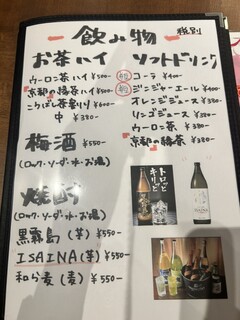 飲み物
税別
お茶ハイ
ウーロン茶ハイ ¥500-
京都の緑茶ハイ ¥500-
¥500-
中 ¥380-
ソフトドリンク
コーラ ¥400-
ジンジャーエール ¥400-
オレンジジュース ¥380-
リンゴジュース ¥380-
ウーロン茶 ¥380-
京都の緑茶 ¥380-
梅酒 ¥550-
(ロック・ソーダ・水・お湯)
焼酎
(ロック・ソーダ・水・お湯)
黒霧島(芋) ¥550-
ISAINA(芋) ¥550-
和ら麦(麦) ¥550-
トロッと
キリッと